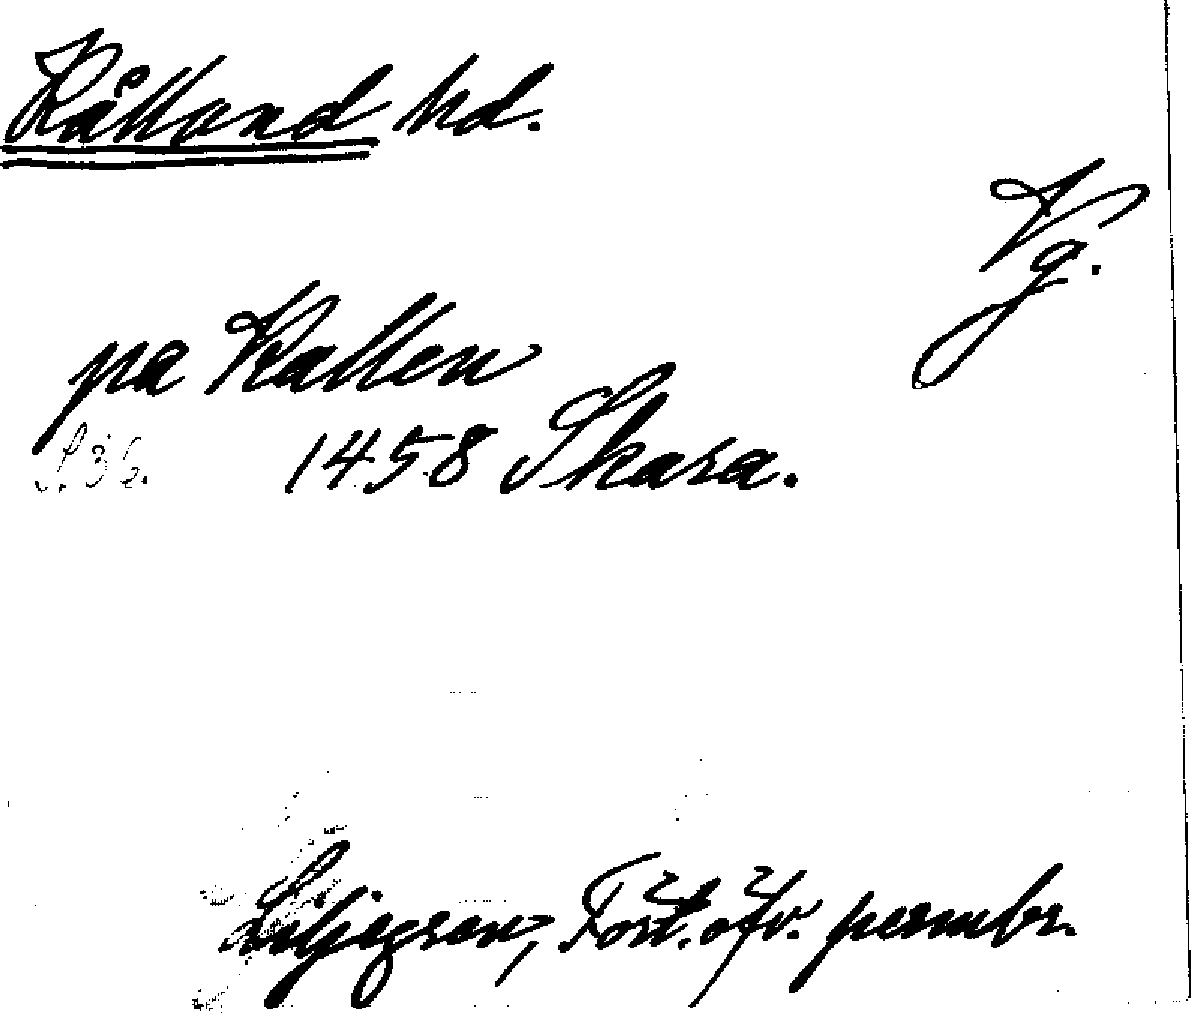 Kålland hd.
Vg.
pa Kallen
S. 36. 1458 Skara.
Liljegren, Fört. öfv. permbr.